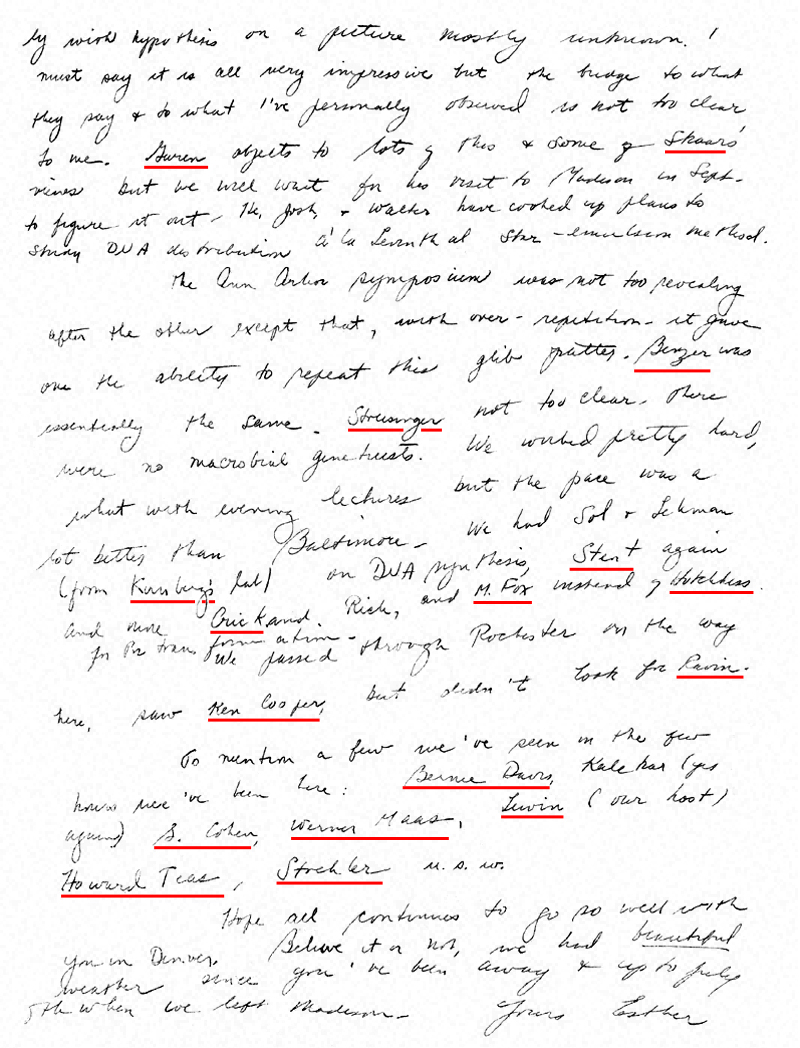 ly with hypothesis on a picture mostly unknown. I
must say it is all very impressive but the bridge to what
they say & to what I've personally observed is not too clear
to me. Guren objects to lots of this & some of Skaars'
views but we will wait for his visit to Madison in Sept.
to figure it out - He, Josh, & Walter have cooked up plans to
study DNA distribution à la Levinthal star-emulsion method.
The Ann Arbor symposium was not too revealing
after the other except that, with over-repetition - it gave
one the ability to repeat this glib patter. Benzer was
essentially the same. Streisinger not too clear. There
were no macrobial geneticists. We worked pretty hard,
what with evening lectures but the pace was a
lot better than Baltimore - We had Sol & Lehman
(from Kornberg's lab) on DNA synthesis, Stent again
and nine Crick and. Rich, and M. Fox instead of Hotchkiss.
for Pn transformation -
We passed through Rochester on the way
here, saw Ken Cooper, but didn't look for Ravin.
To mention a few we've seen in the few
hours we've been here: Bernie Davis, Kalckar (yes
again) S. Cohen, Werner Maas, Levin (our host)
Howard Teas, Strehler u.s.w.
Hope all continues to go so well with
you in Denver. Believe it or not, we had beautiful
weather since you've been away & up to July
5th when we left Madison -
Yours Esther